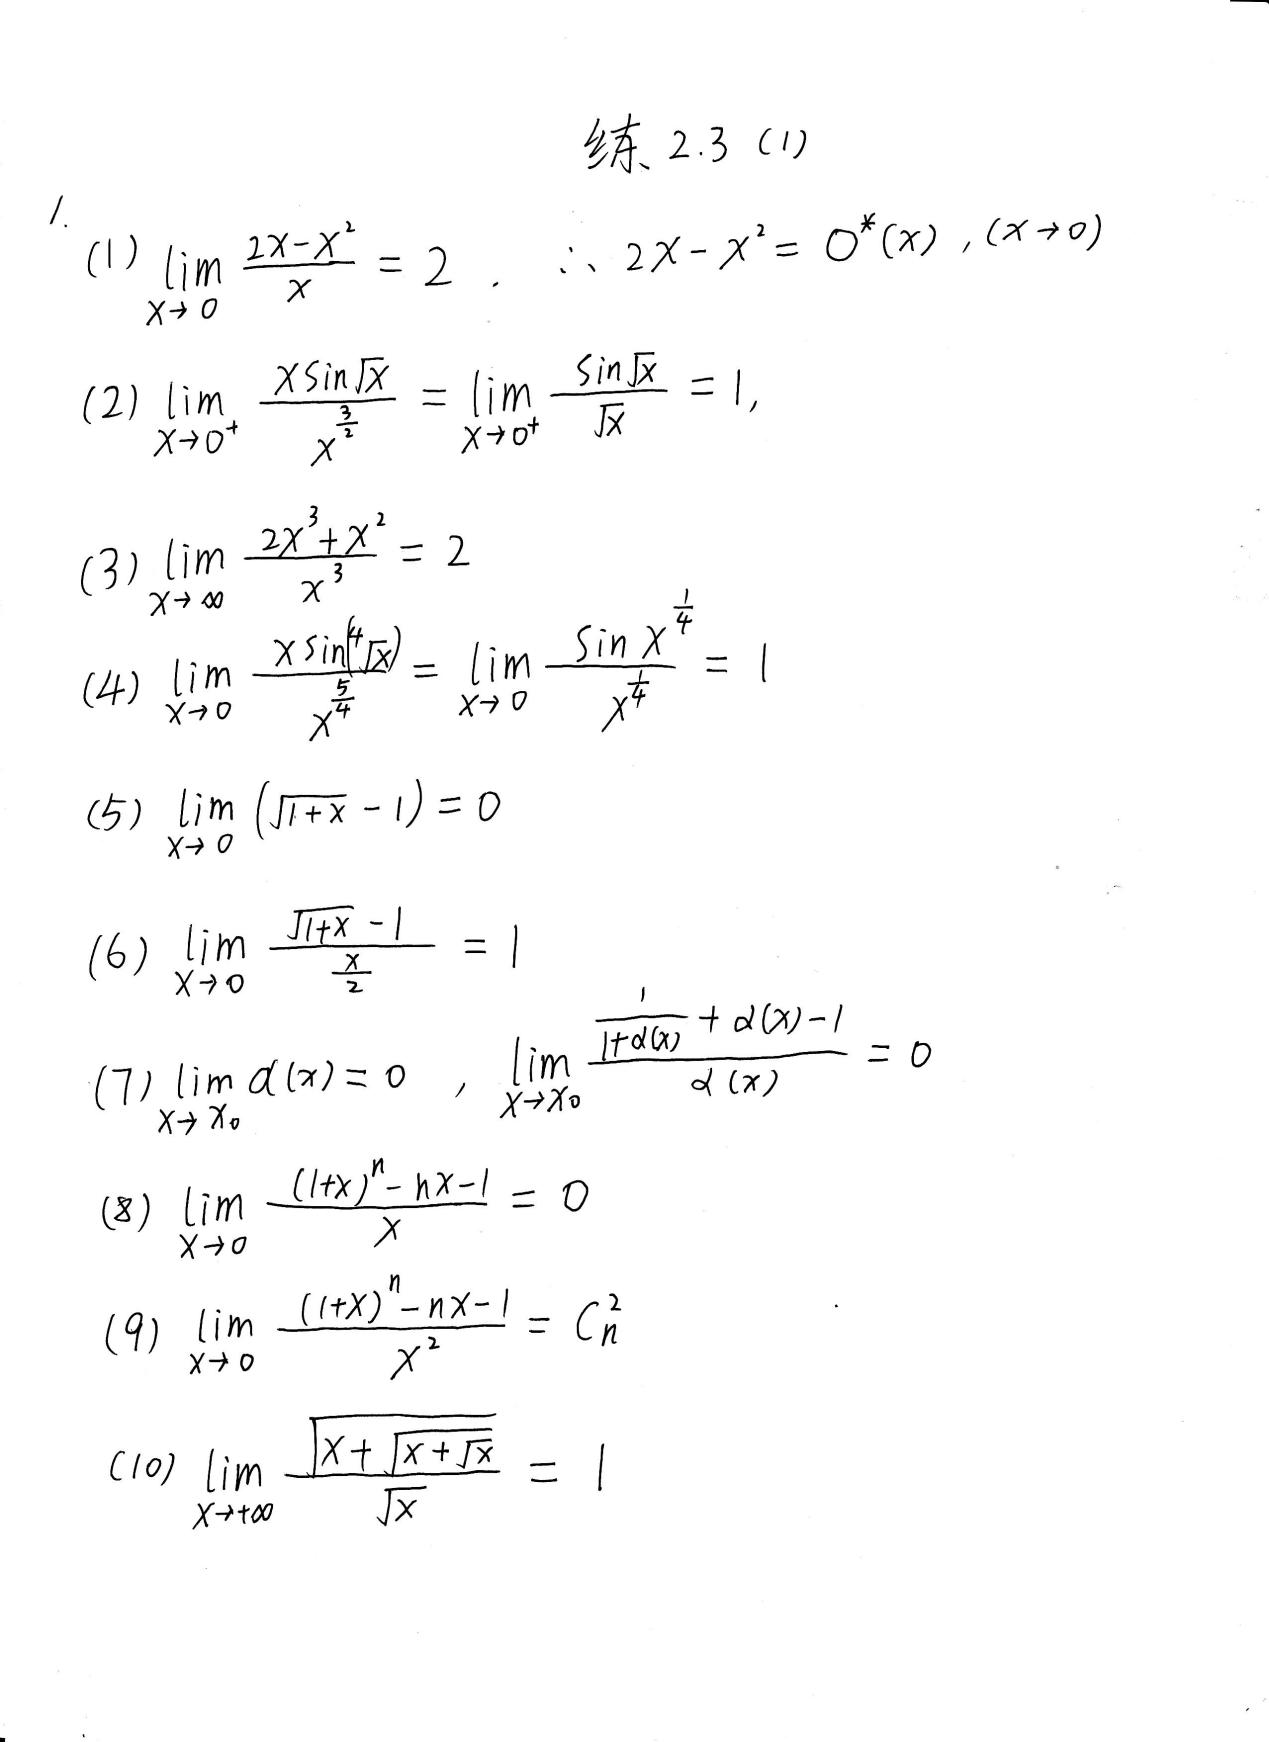 练 2.3 (1)
1.
(1) lim_{x→0} \frac{2x-x^2}{x} = 2 . ∴ 2x-x^2 = O^*(x) , (x→0)
(2) lim_{x→0^+} \frac{x sin√x}{x^{\frac{3}{2}}} = lim_{x→0^+} \frac{sin√x}{√x} = 1,
(3) lim_{x→∞} \frac{2x^3+x^2}{x^3} = 2
(4) lim_{x→0} \frac{x sin(\sqrt[4]{x})}{x^{\frac{5}{4}}} = lim_{x→0} \frac{sin x^{\frac{1}{4}}}{x^{\frac{1}{4}}} = 1
(5) lim_{x→0} (\sqrt{1+x} - 1) = 0
(6) lim_{x→0} \frac{\sqrt{1+x} - 1}{\frac{x}{2}} = 1
(7) lim_{x→x_0} α(x) = 0 , lim_{x→x_0} \frac{\frac{1}{1+α(x)} + α(x) - 1}{α(x)} = 0
(8) lim_{x→0} \frac{(1+x)^n - nx - 1}{x} = 0
(9) lim_{x→0} \frac{(1+x)^n - nx - 1}{x^2} = C_n^2
(10) lim_{x→+∞} \frac{\sqrt{x+\sqrt{x+\sqrt{x}}}}{\sqrt{x}} = 1